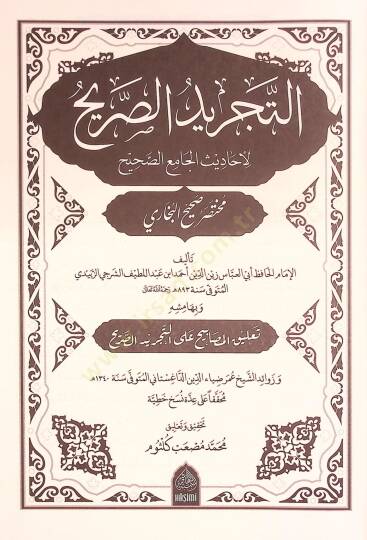 التَّجْرِيدُ الصَّرِيحُ
لِأَحَادِيثِ الجَامِعِ الصَّحِيحِ
مختصر صحيح البخاري
تأليف
الإمام الحافظ أبي العباس زين الدين أحمد ابن عبد اللطيف الشرجي الزبيدي
المتوفى سنة ٨٩٣هـ رحمه الله تعالى
وبهامشه
تعليق المصابيح على التجريد الصريح
وزوائد الشيخ عمر ضياء الدين الداغستاني المتوفى سنة ١٣٤٠هـ
محققا على عدة نسخ خطية
تحقيق وتعليق
محمد مصعب كلثوم
HAŞİMİ